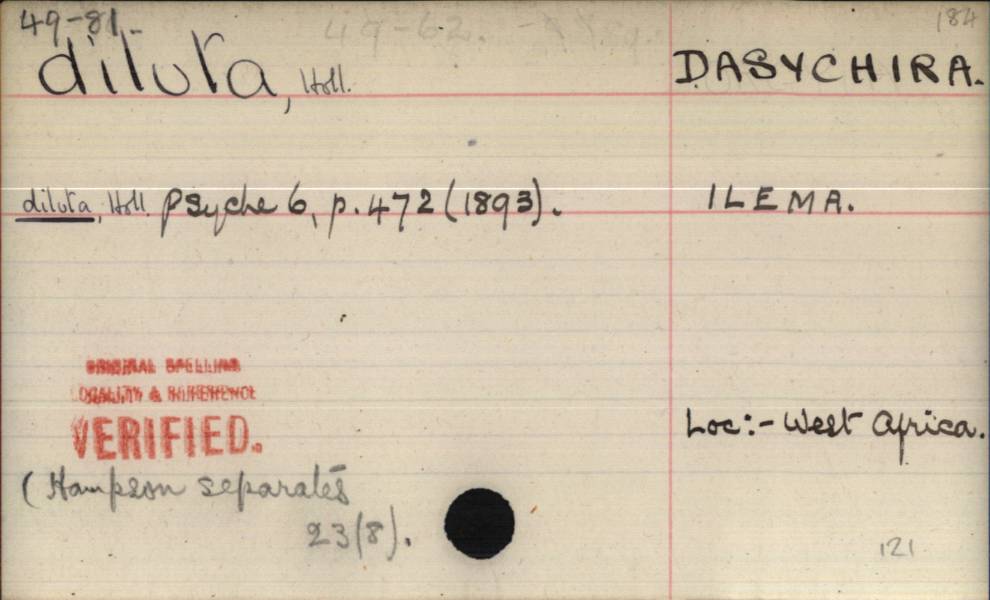 49-81.
184
diluta, Holl.
DASYCHIRA.
diluta, Holl. Psyche 6, p. 472 (1893).
ILEMA.
ORIGINAL SPELLING
LOCALITY & REFERENCE
VERIFIED.
Loc:- West Africa.
(Hampson separates
23(8).
121